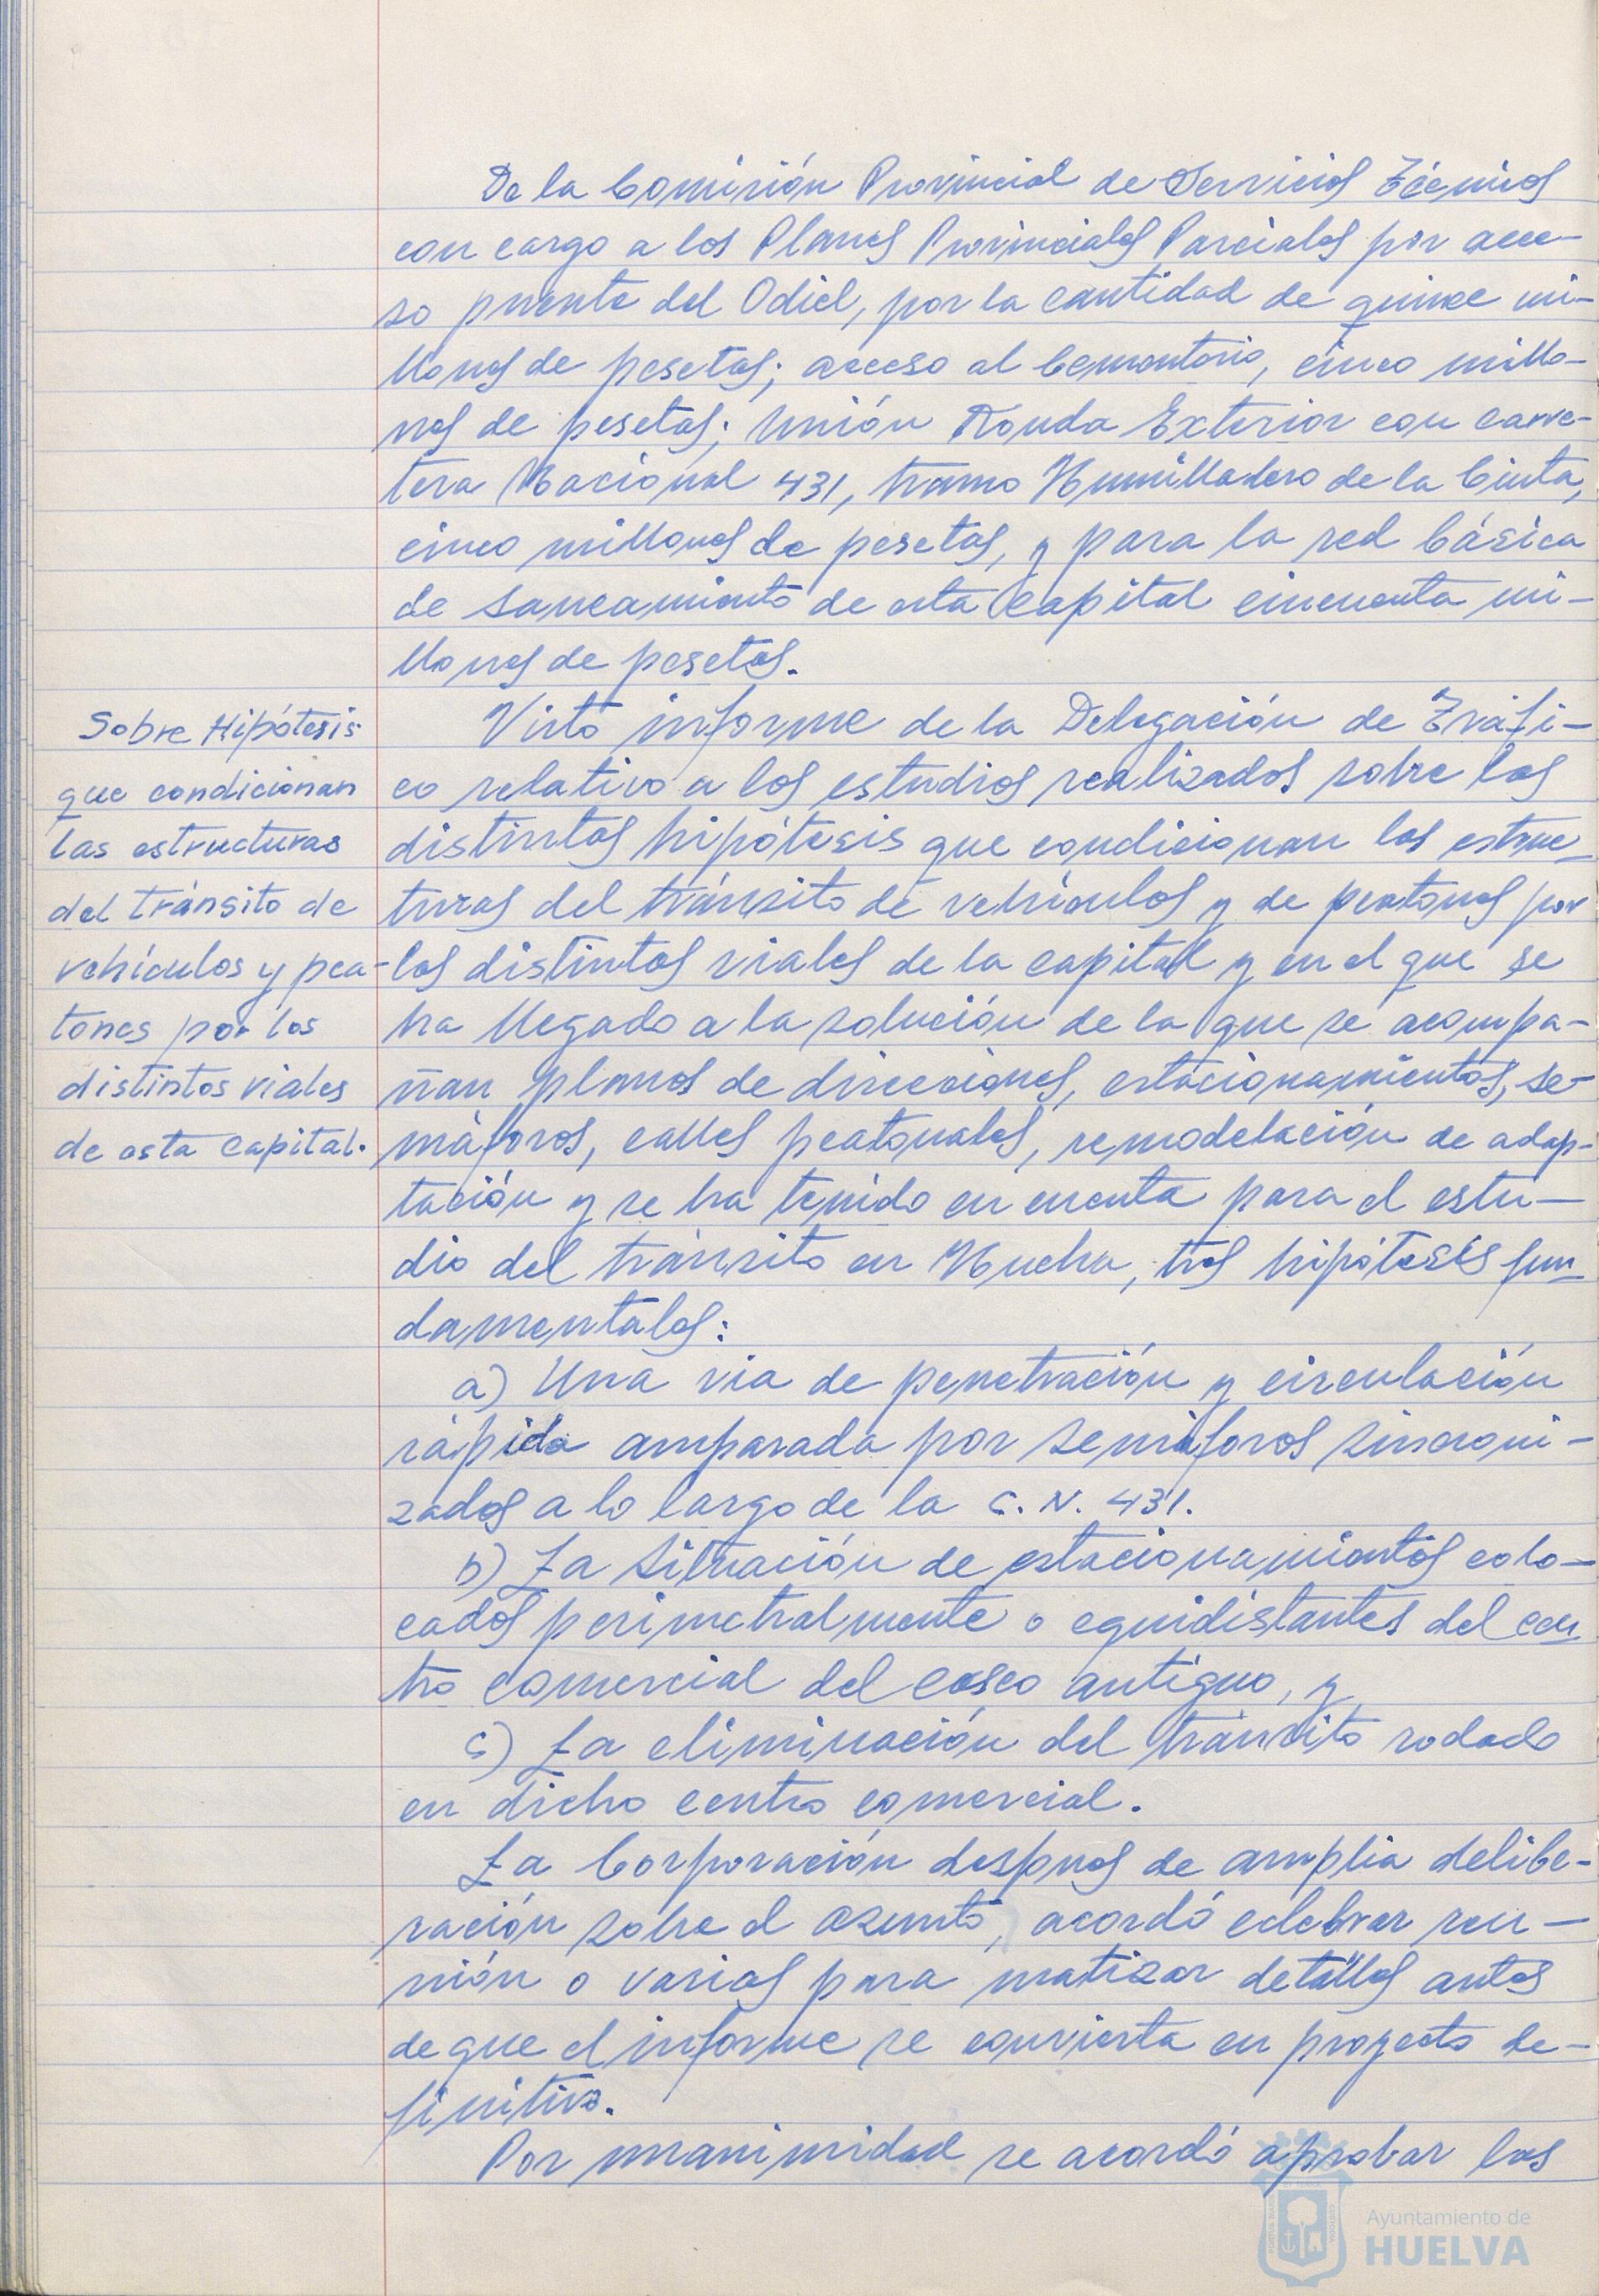 De la Comisión Provincial de Servicios Técnicos
con cargo a los Planes Provinciales Parciales por acce-
so puente del Odiel, por la cantidad de quince mi-
llones de pesetas; acceso al Cementerio, cinco millo-
nes de pesetas; Unión Ronda Exterior con carre-
tera Nacional 431, tramo Humilladero de la Cinta,
cinco millones de pesetas, y para la red básica
de saneamiento de esta Capital cincuenta mi-
llones de pesetas.
Sobre Hipótesis
que condicionan
las estructuras
del tránsito de
vehículos y pea-
tones por los
distintos viales
de esta Capital.
Visto informe de la Delegación de Tráfi-
co relativo a los estudios realizados sobre las
distintas hipótesis que condicionan las estruc-
turas del tránsito de vehículos y de peatones por
los distintos viales de la capital y en el que se
ha llegado a la solución de la que se acompa-
ñan planos de direcciones, estacionamientos, se-
máforos, calles peatonales, remodelación de adap-
tación y se ha tenido en cuenta para el estu-
dio del tránsito en Huelva, tres hipótesis fun-
damentales:
a) Una via de penetración y circulación
rápida amparada por semáforos sincroni-
zados a lo largo de la C. N. 431.
b) La situación de estacionamientos colo-
cados perimetralmente o equidistantes del cen-
tro comercial del casco antiguo, y
c) La eliminación del tránsito rodado
en dicho centro comercial.
La Corporación despues de amplia delibe-
ración sobre el asunto, acordó celebrar reu-
nión o varias para matizar detalles antes
de que el informe se convierta en proyecto de-
finitivo.
Por unanimidad se acordó aprobar las
Ayuntamiento de
HUELVA